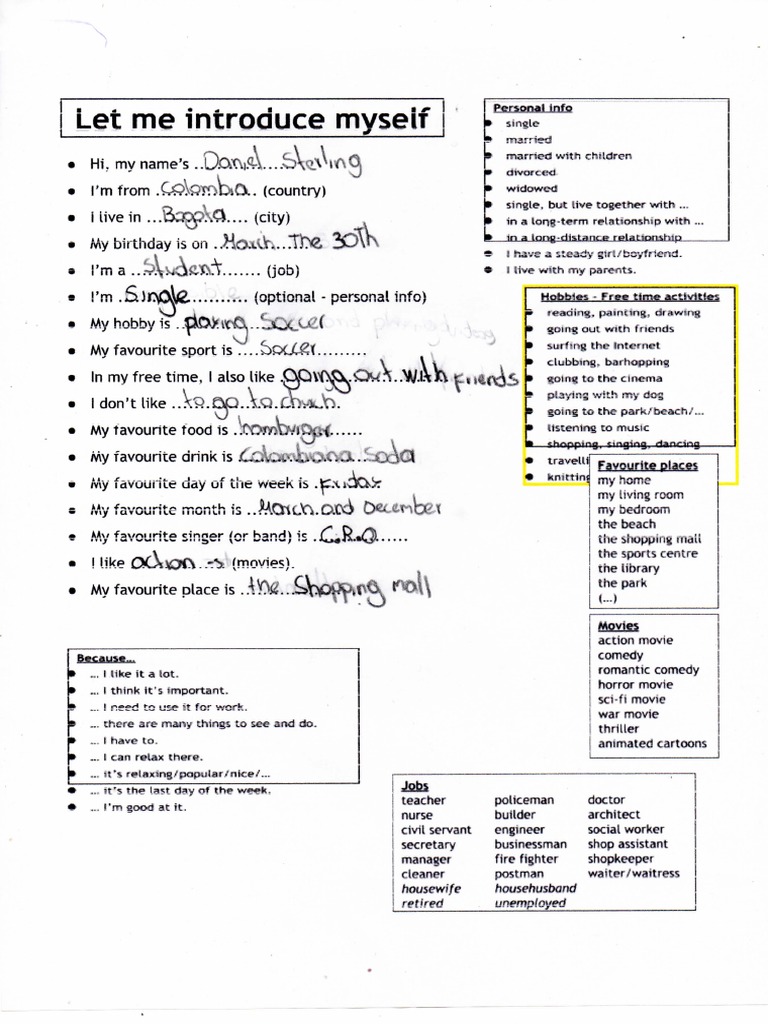 Let me introduce myself
• Hi, my name's ..Daniel...Sterling
• I'm from .Colombia.. (country)
• I live in ...Bogota.... (city)
• My birthday is on ..March...The 30Th
• I'm a ...Student....... (job)
• I'm .Single........... (optional - personal info)
• My hobby is ..playing...Soccer
• My favourite sport is ....Soccer.........
• In my free time, I also like .going.out..with friends
• I don't like ...to.go..to.church.
• My favourite food is ..hamburger......
• My favourite drink is .Colombiana Soda
• My favourite day of the week is .friday.
• My favourite month is ...March.and December
• My favourite singer (or band) is .C.R.O......
• I like action -s (movies).
• My favourite place is ..the...Shopping mall
Personal info
• single
• married
• married with children
• divorced
• widowed
• single, but live together with ...
• in a long-term relationship with ...
• in a long-distance relationship
• I have a steady girl/boyfriend.
• I live with my parents.
Hobbies - Free time activities
• reading, painting, drawing
• going out with friends
• surfing the Internet
• clubbing, barhopping
• going to the cinema
• playing with my dog
• going to the park/beach/...
• listening to music
• shopping, singing, dancing
• travelli
• knitting
Favourite places
my home
my living room
my bedroom
the beach
the shopping mall
the sports centre
the library
the park
(...)
Movies
action movie
comedy
romantic comedy
horror movie
sci-fi movie
war movie
thriller
animated cartoons
Because...
• ... I like it a lot.
• ... I think it's important.
• ... I need to use it for work.
• ... there are many things to see and do.
• ... I have to.
• ... I can relax there.
• ... it's relaxing/popular/nice/...
• ... it's the last day of the week.
• ... I'm good at it.
Jobs
teacher policeman doctor
nurse builder architect
civil servant engineer social worker
secretary businessman shop assistant
manager fire fighter shopkeeper
cleaner postman waiter/waitress
housewife househusband
retired unemployed